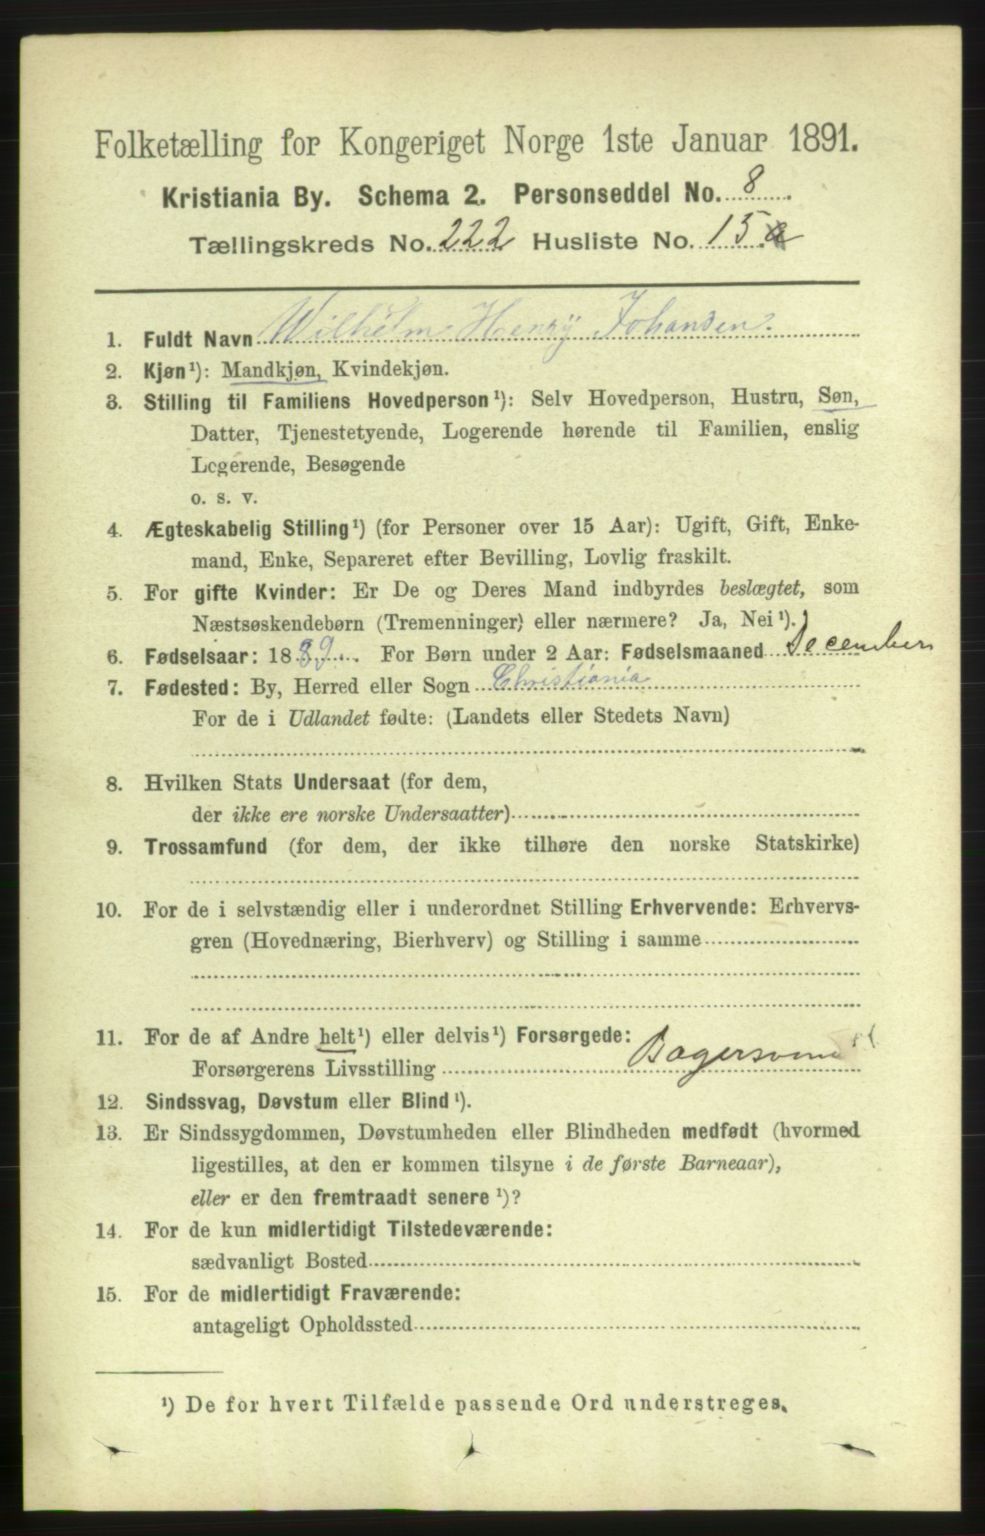 Folketælling for Kongeriget Norge 1ste Januar 1891.
Kristiania By. Schema 2. Personseddel No. 8
Tællingskreds No. 222 Husliste No. 15
1. Fuldt Navn Wilhelm Henry Johansen.
2. Kjøn¹): Mandkjøn, Kvindekjøn.
3. Stilling til Familiens Hovedperson¹): Selv Hovedperson, Hustru, Søn,
Datter, Tjenestetyende, Logerende hørende til Familien, enslig
Logerende, Besøgende
o. s. v.
4. Ægteskabelig Stilling¹) (for Personer over 15 Aar): Ugift, Gift, Enke-
mand, Enke, Separeret efter Bevilling, Lovlig fraskilt.
5. For gifte Kvinder: Er De og Deres Mand indbyrdes beslægtet, som
Næstsøskendebørn (Tremenninger) eller nærmere? Ja, Nei¹).
6. Fødselsaar: 1889. For Børn under 2 Aar: Fødselsmaaned December
7. Fødested: By, Herred eller Sogn Christiania
For de i Udlandet fødte: (Landets eller Stedets Navn)
8. Hvilken Stats Undersaat (for dem,
der ikke ere norske Undersaatter)
9. Trossamfund (for dem, der ikke tilhøre den norske Statskirke)
10. For de i selvstændig eller i underordnet Stilling Erhvervende: Erhvervs-
gren (Hovednæring, Bierhverv) og Stilling i samme
11. For de af Andre helt¹) eller delvis¹) Forsørgede:
Forsørgerens Livsstilling Bagersvend
12. Sindssvag, Døvstum eller Blind¹).
13. Er Sindssygdommen, Døvstumheden eller Blindheden medfødt (hvormed
ligestilles, at den er kommen tilsyne i de første Barneaar),
eller er den fremtraadt senere¹)?
14. For de kun midlertidigt Tilstedeværende:
sædvanligt Bosted
15. For de midlertidigt Fraværende:
antageligt Opholdssted
¹) De for hvert Tilfælde passende Ord understreges.